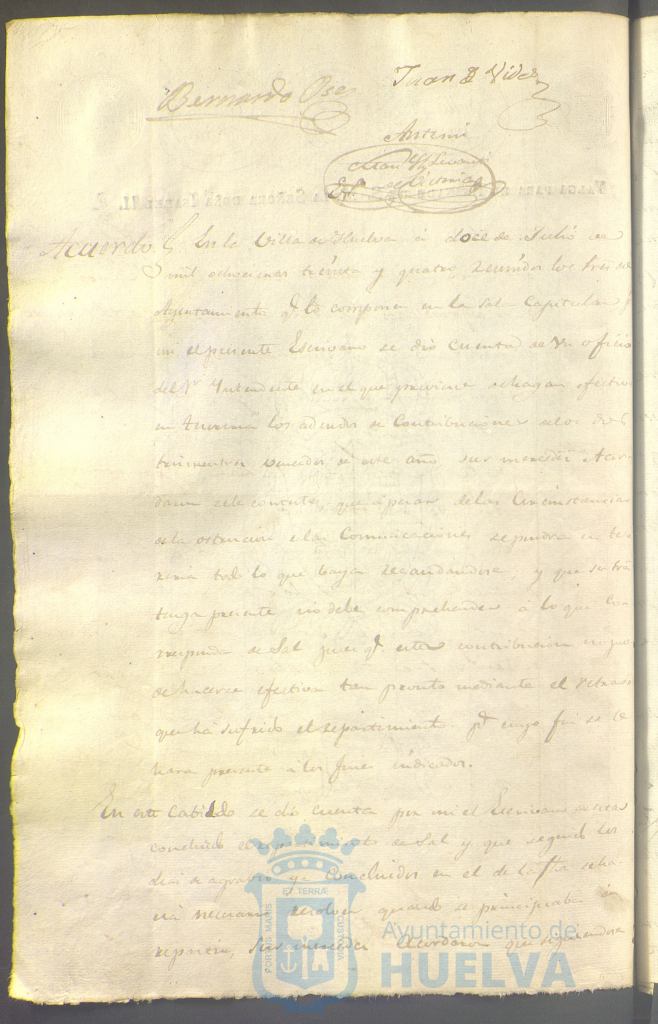 Bernardo Ose
Juan B Vides
Antemi
VALGA PARA EL REINADO DE LA SEÑORA DOÑA ISABEL II.
Acuerdo En la Villa de Huelva á doce de Julio de
mil ochocientos treinta y quatro, reunidos los Sres del
Ayuntamiento q.e lo componen en la Sala Capitular p.r
mi el presente Escrivano se dió cuenta de un oficio
del Sr Yntendente en el que previene se hagan efectivos
en Tesoreria los adeudos de Contribuciones de los dos
trimestres vencidos de este año sus mercedes Acor
daron se le conteste, que apesar de las Circunstancias
de la obstruccion de las Comunicaciones se pondra en teso
reria todo lo que vaya recaudandose y que
tenga presente no debe comprehender á lo que Co
rresponda de Sal pues q.e esta contribucion no puede
de hacerse efectiva tan pronto mediante el retraso
que há sufrido el repartimiento p.a cuyo fin se le
hara presente á los fines indicados.
En este Cabildo se dió cuenta por mi el Escrivano de estar
concluido el repartimiento de Sal y que siendo los
dias de agravio ya concluidos en el de la fha
necesario resolver quando se principiaba
sus mercedes Acordaron que
Ayuntamiento de
HUELVA
PORTUS MARIS
ET TERRÆ
CUSTODIA